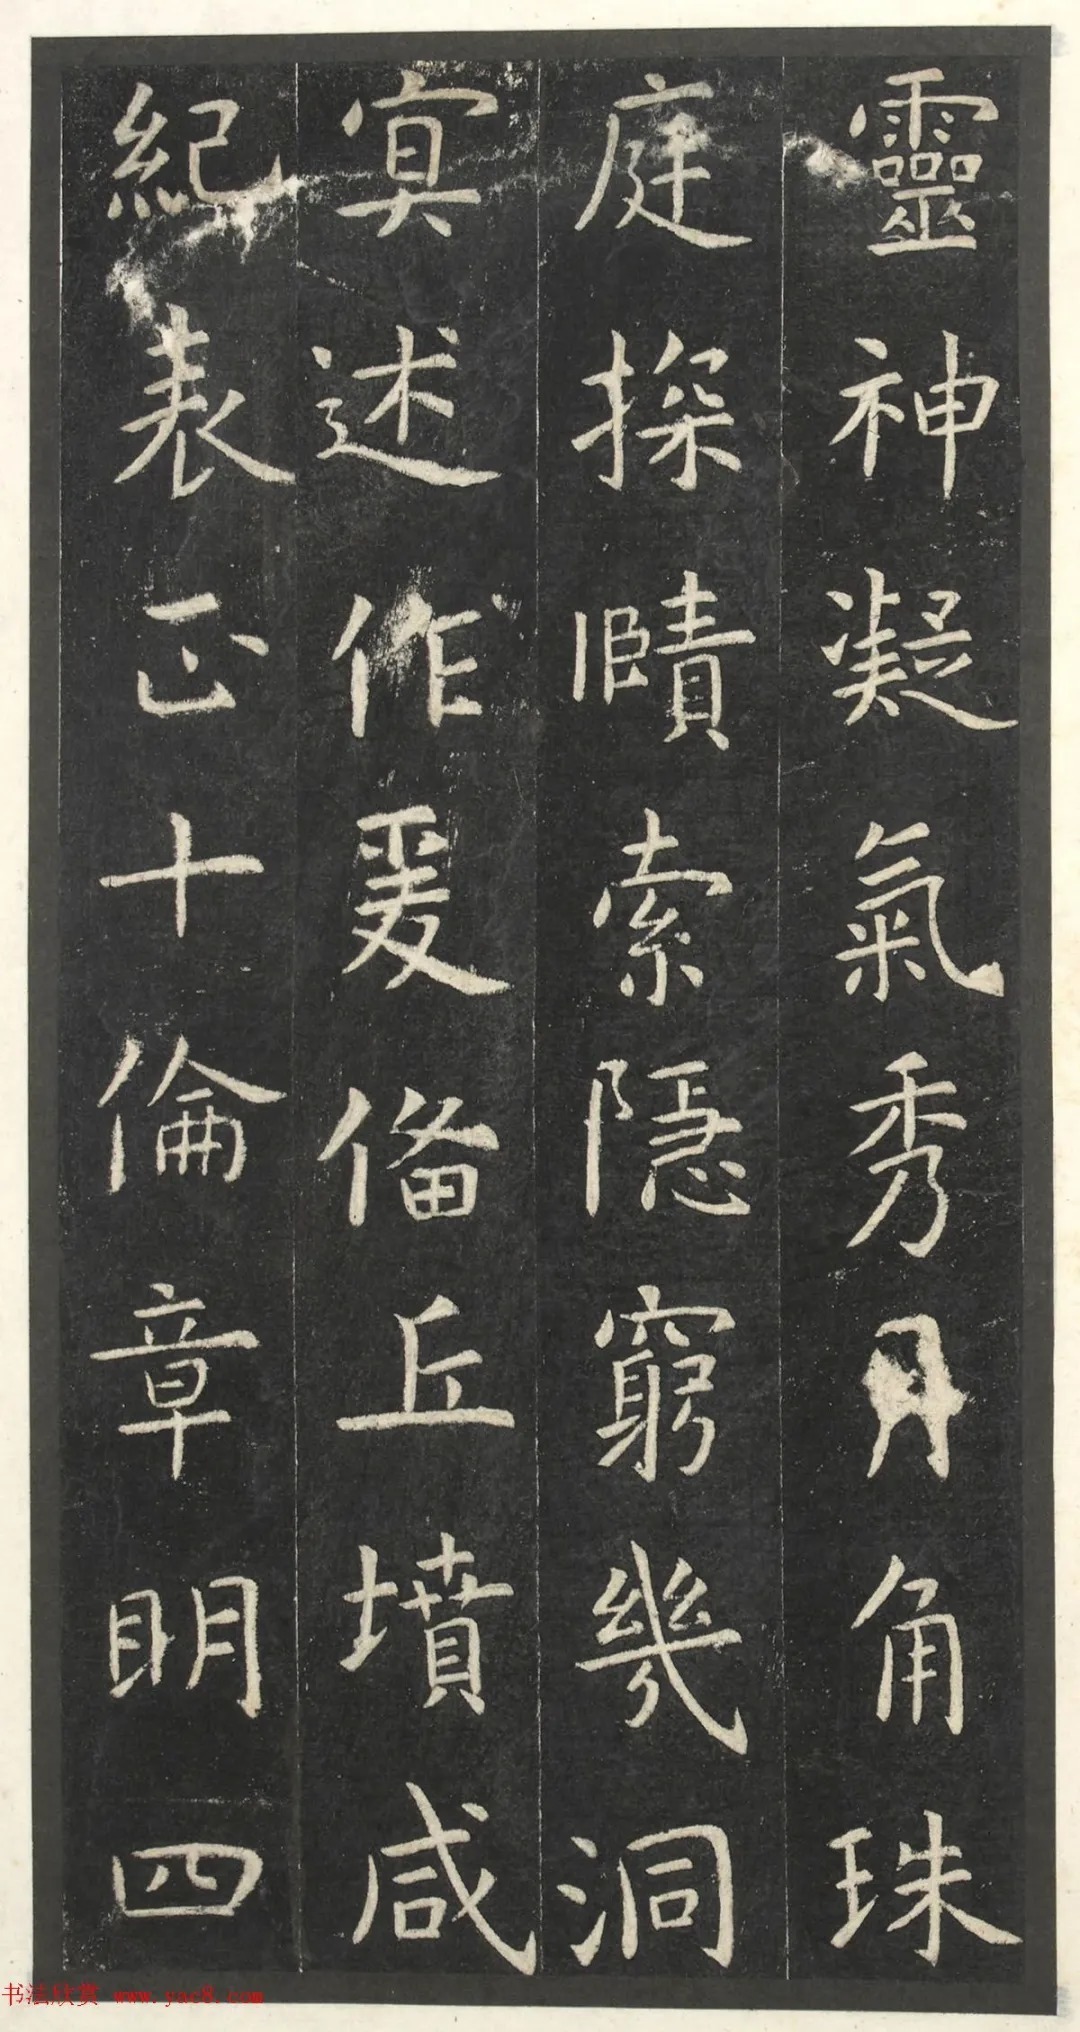 靈神凝氣秀月角珠
庭探賾索隱窮幾洞
寘述作爰俻丘墳咸
紀表正十倫章明四
书法欣赏 www.yac8.com